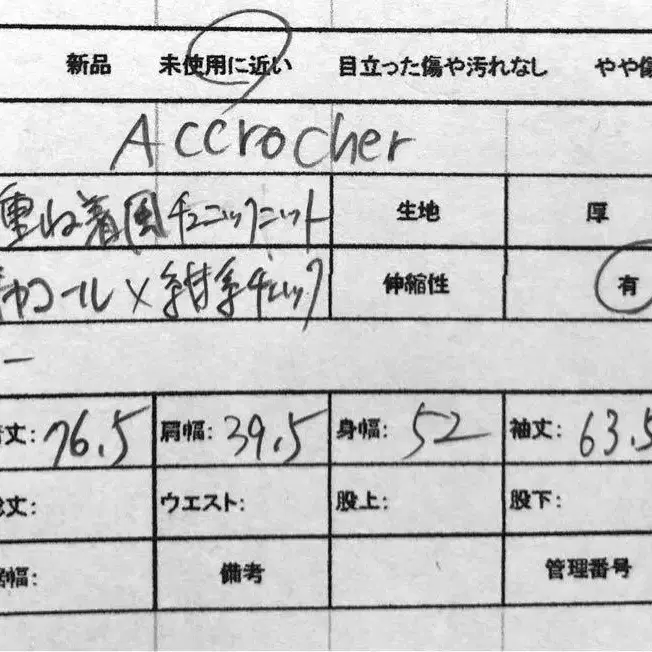 新品 未使用に近い 目立った傷や汚れなし やや傷
Accrocher
重ね着風チュニックニット 生地 厚
チャコール×紺系チェック 伸縮性 有
ー
着丈: 76.5 肩幅: 39.5 身幅: 52 袖丈: 63.5
総丈: ウエスト: 股上: 股下:
裾幅: 備考 管理番号